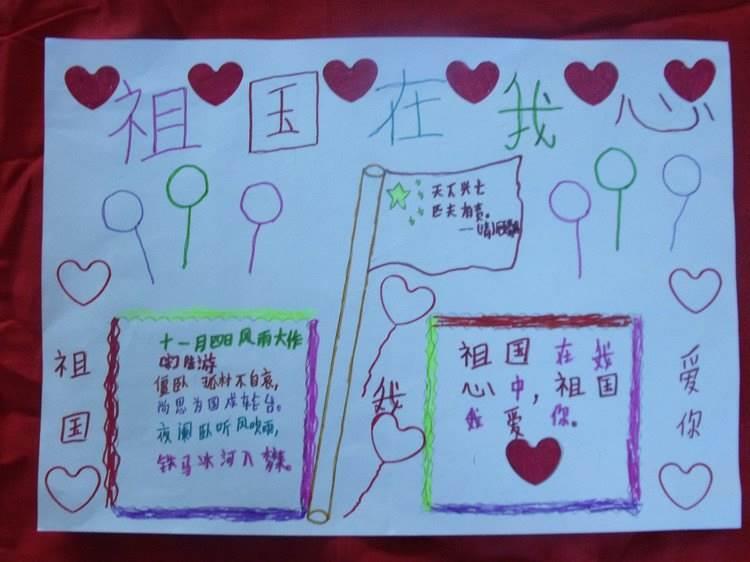 祖国在我心
天下兴亡
匹夫有责。
祖
国
十一月四日风雨大作
僵卧孤村不自哀,
尚思为国戍轮台。
夜阑卧听风吹雨,
铁马冰河入梦来。
我
祖国在我
心中,祖国
我爱你。
爱
你